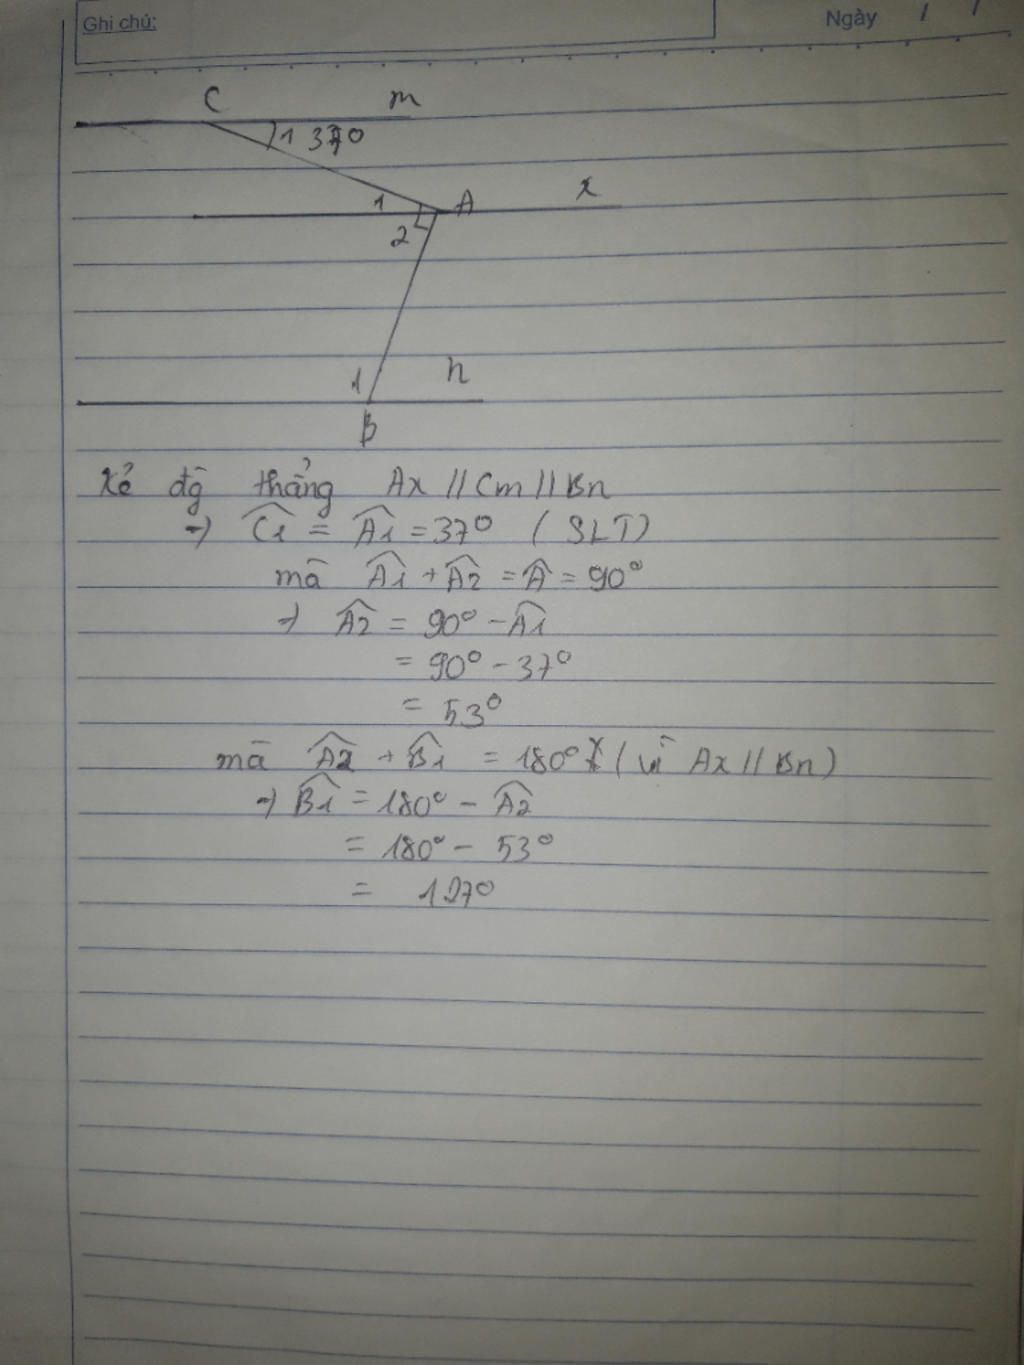 Ghi chú:
Ngày / /
C m
1 37°
1 A x
2
1 n
B
Kẻ đg thẳng Ax // Cm // Bn
→ Ĉ1 = Â1 = 37° (SLT)
mã Â1 + Â2 = Â = 90°
→ Â2 = 90° - Â1
= 90° - 37°
= 53°
mã Â2 + B̂1 = 180° (vì Ax // Bn)
→ B̂1 = 180° - Â2
= 180° - 53°
= 127°